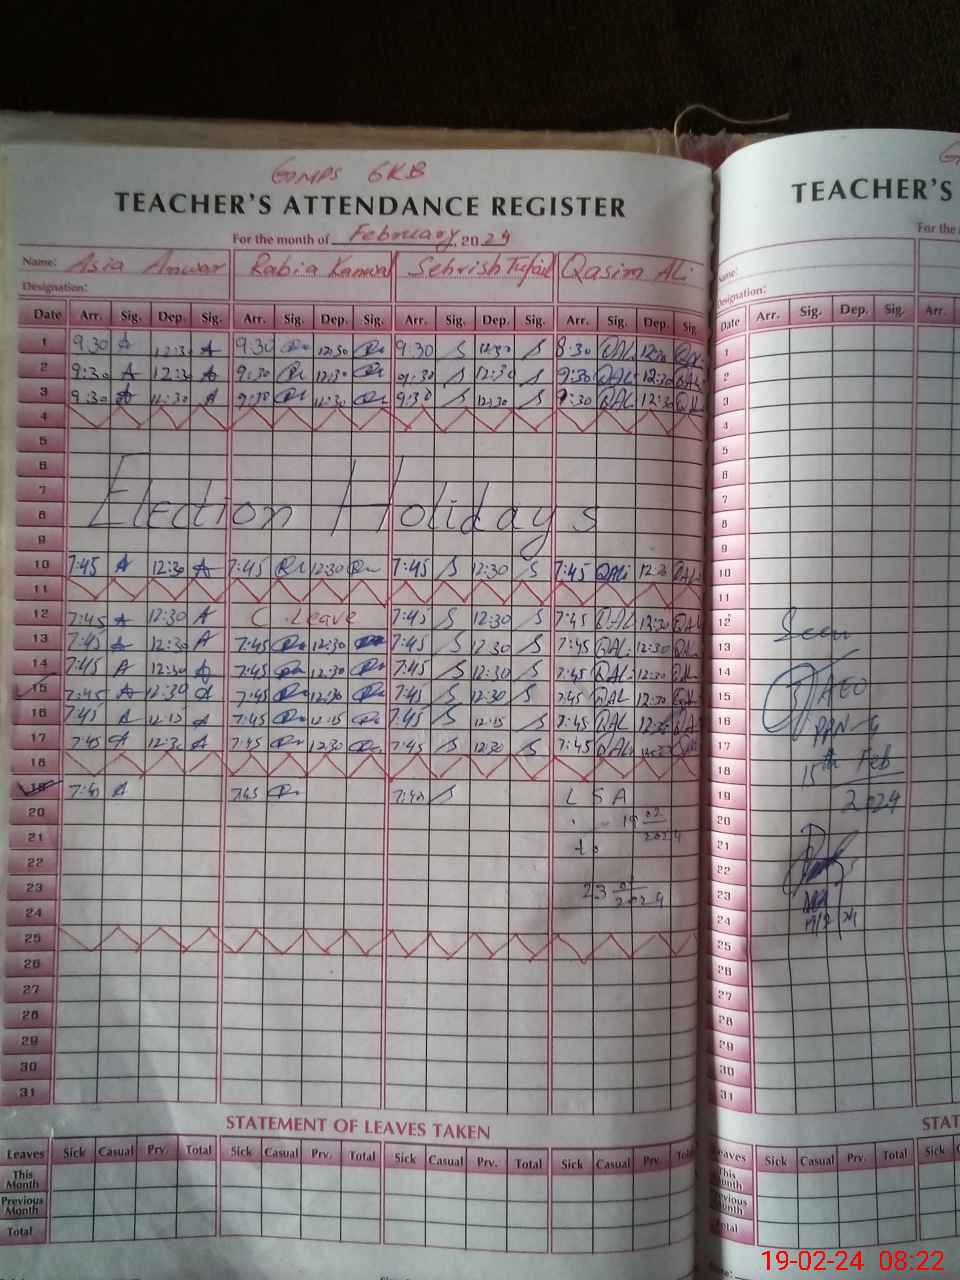 GMPS GKB
TEACHER'S ATTENDANCE REGISTER
For the month of February, 2024
Name: Asia Anwar Rabia Kanwal Sehrish Tufail Qasim ALi
Designation:
Date Arr. Sig. Dep. Sig. Arr. Sig. Dep. Sig. Arr. Sig. Dep. Sig. Arr. Sig. Dep. Sig.
1 9:30 A 12:30 A 9:30 12:30 9:30 S 12:30 S 8:30 QAL
2 9:30 A 12:30 A 9:30 12:30 9:30 S 12:30 S 9:30 QAL 12:30 QAL
3 9:30 A 12:30 A 9:30 12:30 9:30 S 12:30 S 9:30 QAL 12:30
4
5
6
7
Election Holidays
8
9
10 7:45 A 12:30 A 7:45 12:30 7:45 S 12:30 S 7:45 QAL 12:30 QAL
11
12 7:45 A 12:30 A C. Leave 7:45 S 12:30 S 7:45 QAL 12:30 QAL
13 7:45 A 12:30 A 7:45 12:30 7:45 S 12:30 S 7:45 QAL 12:30 QAL
14 7:45 A 12:30 A 7:45 12:30 7:45 S 12:30 S 7:45 QAL 12:30
15 7:45 A 12:30 A 7:45 12:30 7:45 S 12:30 S 7:45 QAL 12:30
16 7:45 A 12:15 A 7:45 12:15 7:45 S 12:15 S 7:45 QAL 12:30 QAL
17 7:45 A 12:30 A 7:45 12:30 7:45 S 12:30 S 7:45 QAL
18
19 7:45 A 7:45 7:45 S L S A
20 19 02
21 2024
to
22
23 23 02
2024
24
25
26
27
28
29
30
31
STATEMENT OF LEAVES TAKEN
Leaves Sick Casual Prv. Total Sick Casual Prv. Total Sick Casual Prv. Total Sick Casual Prv. Total
This Month
Previous Month
Total
TEACHER'S
For the
Name:
Designation:
Date Arr. Sig. Dep. Sig. Arr.
1
2
3
4
5
6
7
8
9
10
11
12
Seen
13
14
15 AEO
16
17
15th Feb
18
19 2024
20
21
22
23
24
25
26
27
28
29
30
31
STAT
Leaves Sick Casual Prv. Total Sick
This Month
Previous Month
Total
19-02-24 08:22